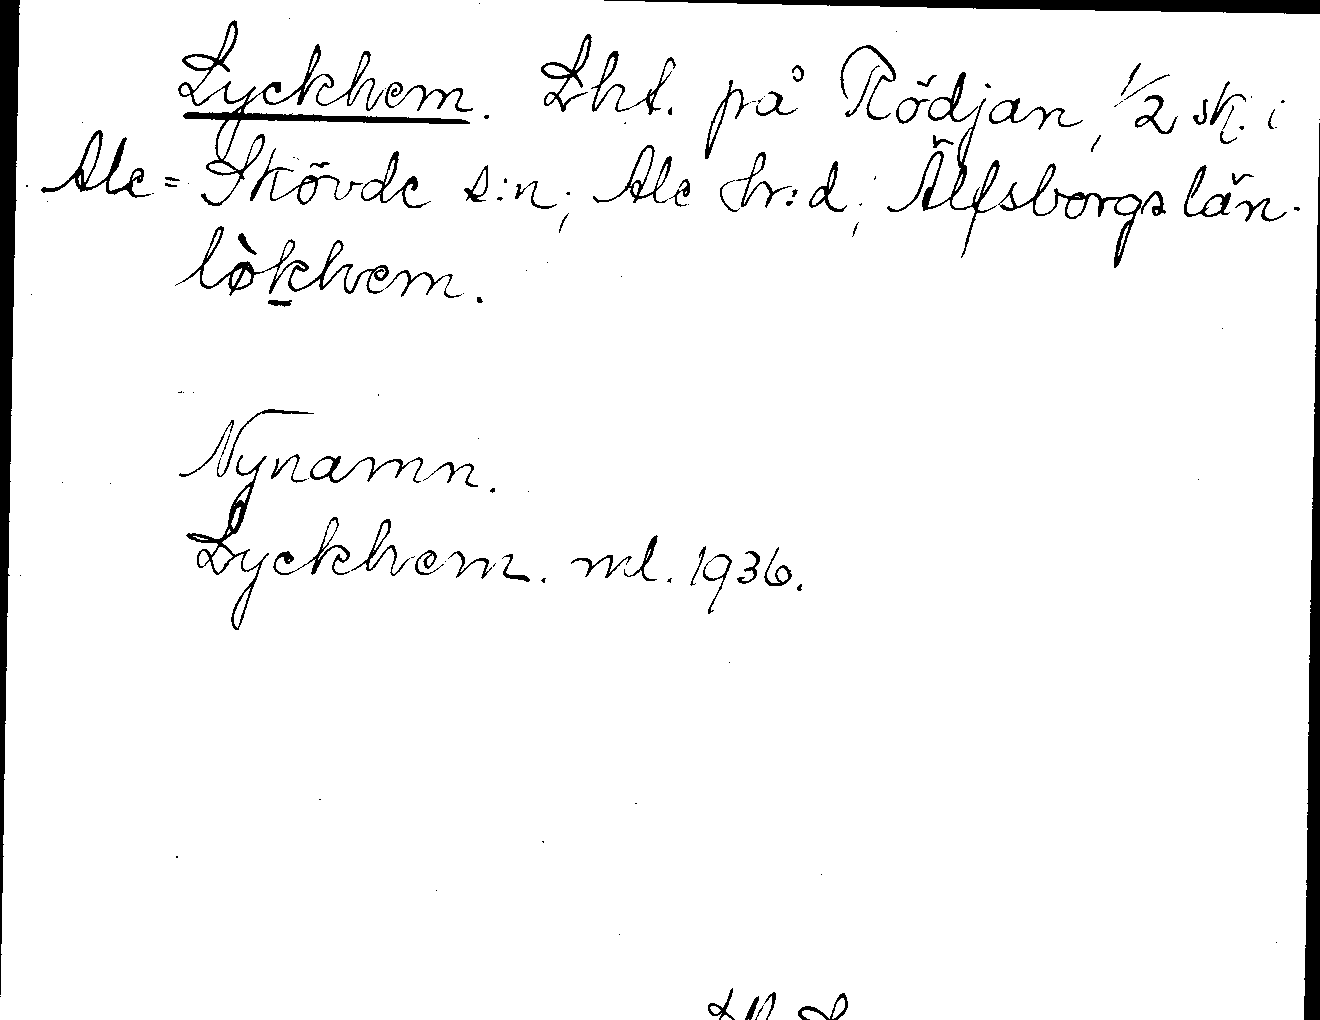 Lyckhem. Lht. på Rödjan, 1/2 sk. i
Ale=Skövde s:n; Ale hr:d; Älfsborgs län.
lø̀k̲hem.
Nynamn.
Lyckhem. ml. 1936.